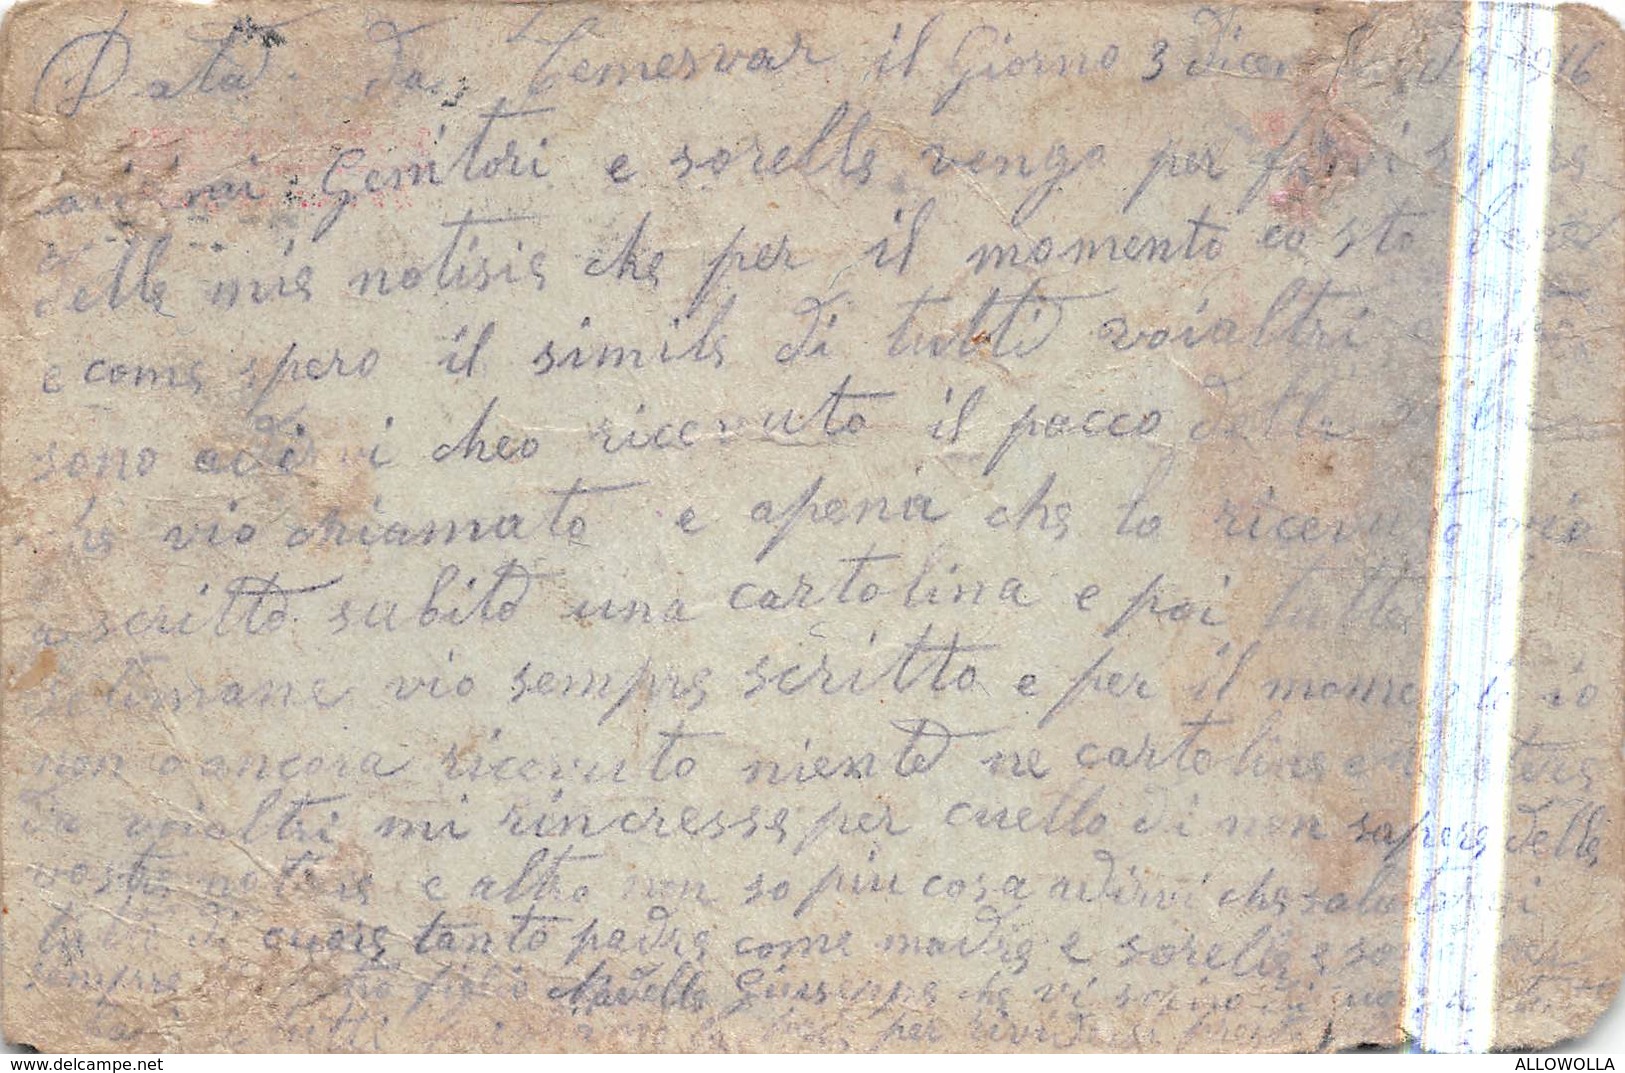 Data da Temesvar il Giorno 3 1916
Genitori e sorelle vengo per farvi sapere
delle mie notisie che per il momento co sto
e come spero il simile di tutti voialtri
sono adirvi cheo ricevuto il pacco delle
che vio chiamato e apena che lo ricevuto vio
scritto subito una cartolina e poi tutte
setimane vio sempre scritto e per il momento io
non o ancora ricevuto niente ne cartoline ne letere
da voialtri mi rincresse per cuello di non sapere delle
vostre notisie e altro non so piu cosa adirvi che salutarvi
tutti di cuore tanto padre come madre e sorelle e sono
sempre figlio Giuseppe che vi
tutti per rivederse presto
www.delcampe.net
ALLOWOLLA